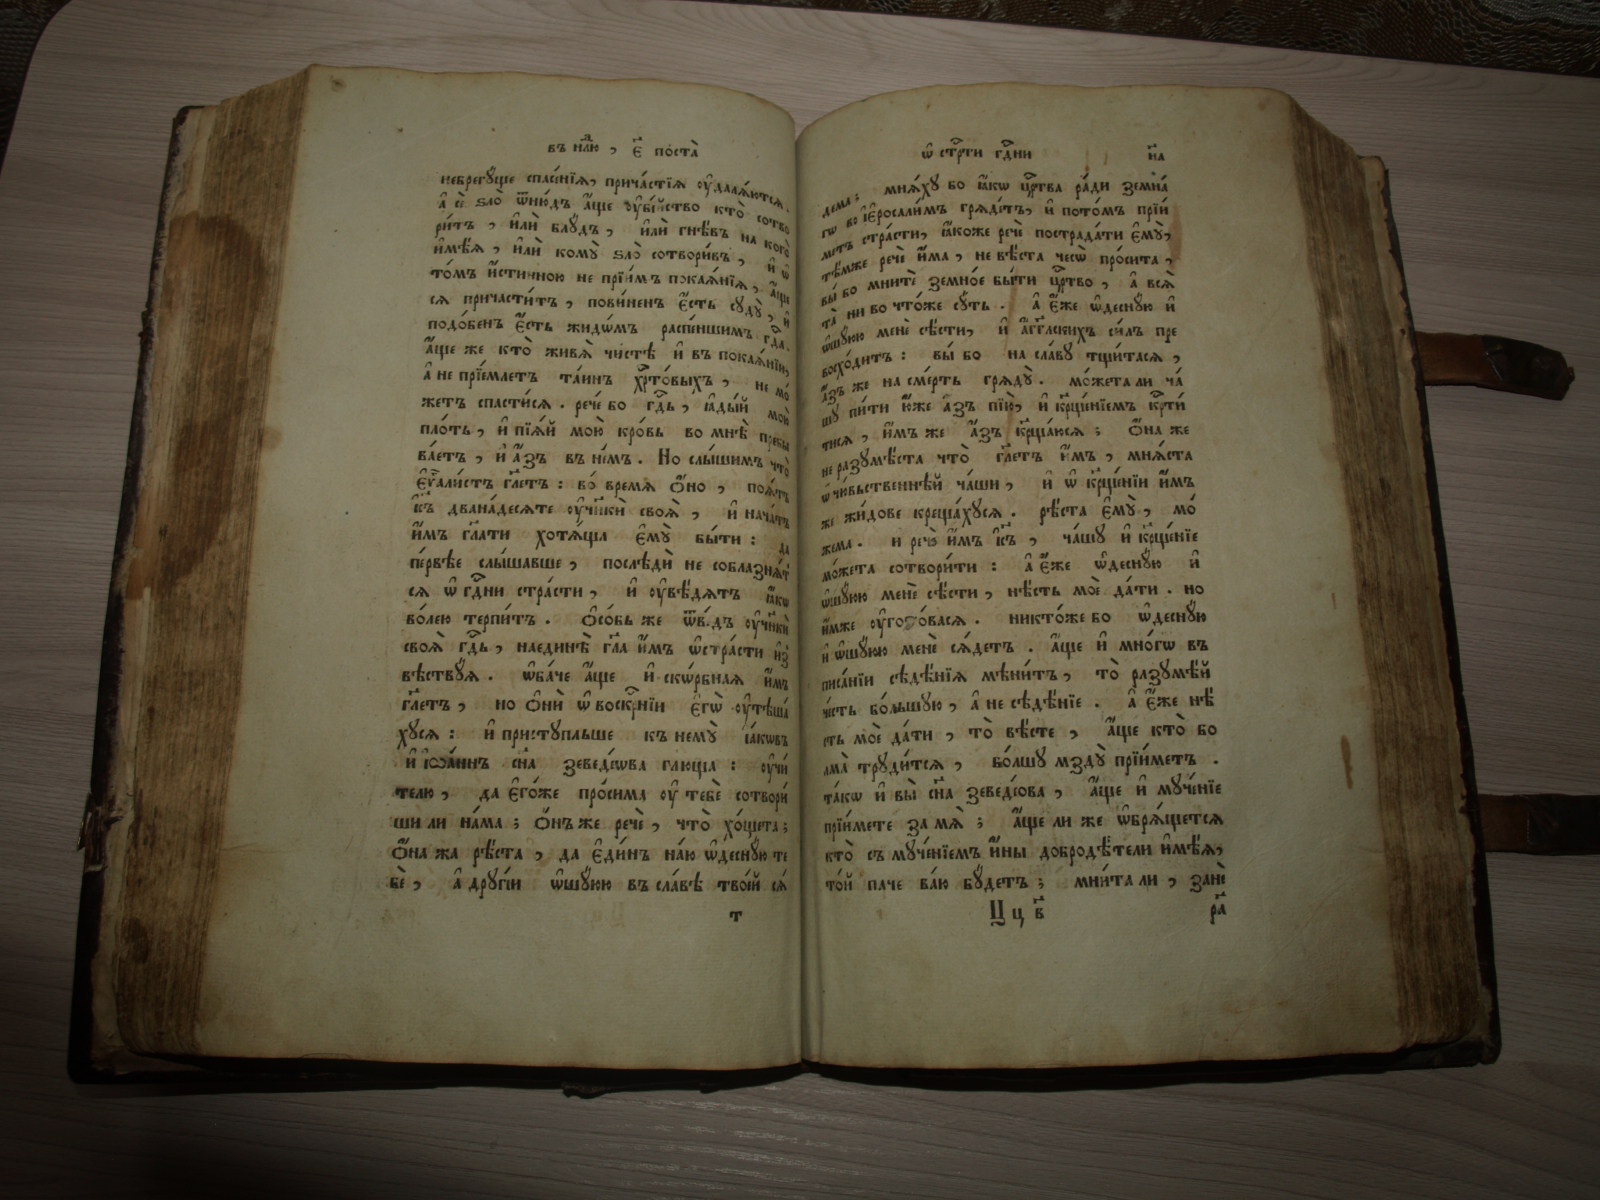 въ нлⷣю, є҃ поста̀
небрегꙋще спасе́нїѧ, прича́стїѧ ᲂу҆далѧ́ютсѧ.
а҆ се̏ ѕло̀ ѿню́дъ а҆́ще ᲂу҆бі́йство кто̀ сотво
ри́тъ, и҆лѝ блꙋ́дъ, и҆лѝ гнѣ́въ на кого̀
и҆мѣ́ѧ, и҆лѝ комꙋ̀ ѕло̀ сотвори́въ, и҆ ѡ҆
то́мъ и҆́стинною не прїи́мъ покаѧ́нїѧ, а҆́ще
сѧ причасти́тъ, пови́ненъ є҆́сть сꙋдꙋ̀, и҆
подо́бенъ є҆́сть жидѡ́мъ распе́ншимъ гдⷭ҇а.
а҆́ще же кто̀ живѧ̀ чи́стѣ и҆ въ покаѧ́нїи,
а҆ не прїе́млетъ та́инъ хрⷭ҇то́выхъ, не мо́
жетъ спасти́сѧ. рече́ бо гдⷭ҇ь, ꙗ҆ды́й мою̀
пло́ть, и҆ пїѧ́й мою̀ кро́вь во мнѣ̀ пребы
ва́етъ, и҆ а҆́зъ въ не́мъ. Но слы́шимъ что̀
є҆ѵⷢ҇алі́стъ гл҃етъ: во́ времѧ ѻ҆́но, поѧ́тъ
і҆с҃ъ двана́десѧте ᲂу҆чн҃кѝ своѧ̀, и҆ нача́тъ
и҆̀мъ гл҃ати хотѧ́щаѧ є҆мꙋ̀ бы́ти: да
пе́рвѣе слы́шавше, послѣдѝ не соблазнѧ́т
сѧ ѡ҆ гдⷭ҇ни стра́сти, и҆ ᲂу҆вѣ́дѧтъ ꙗ҆́кѡ
во́лею терпи́тъ. ѻ҆со́бь же ѿве́дъ ᲂу҆чн҃кѝ
своѧ̀ гдⷭ҇ь, наединѣ̀ гл҃а и҆̀мъ ѡ҆стра́сти и҆з̾
вѣ́ствꙋѧ. ѡ҆ба́че а҆́ще и҆ ско́рбнаѧ и҆̀мъ
гл҃етъ, но ѻ҆нѝ ѡ҆ воскрⷭ҇нїи є҆гѡ̀ ᲂу҆тѣша́
хꙋсѧ: и҆ пристꙋпльше къ немꙋ̀ і҆а́кѡвъ
и҆ і҆ѡа́ннъ сн҃а зеведе́ѡва гл҃юща: ᲂу҆чи́
телю, да є҆го́же про́сима ᲂу҆ тебѐ сотвори́
ши ли на́ма; ѻ҆́нъ же речѐ, что̀ хо́щета;
ѻ҆́на жа рѣ́ста, да є҆ди́нъ на́ю ѡ҆деснꙋ́ю те
бѐ, а҆ дрꙋгі́й ѡ҆шꙋ́юю въ сла́вѣ твое́й сѧ́
т
ѡ҆ стрⷭ҇ти гдⷭ҇ни н҃а
дема; мнѧ́хꙋ бо ꙗ҆́кѡ црⷭ҇тва ра́ди земна́
гѡ во і҆єросали́мъ грѧдꙋ́тъ, и҆ пото́мъ прїи́
метъ стра́сти, ꙗ҆́коже речѐ пострада́ти є҆мꙋ̀,
тѣ́мже речѐ и҆́ма, не вѣ́ста чесѡ̀ про́сита,
вы́ бо мнитѐ земно́е бы́ти црⷭ҇тво, а҆ всѧ̀
та̀ ни во что́же сꙋ́ть. а҆ є҆́же ѡ҆деснꙋ́ю и҆
ѡ҆шꙋ́юю менѐ сѣ́сти, и҆ а҆́гг҃льскихъ си́лъ пре
восхо́дитъ: вы́ бо на сла́вꙋ тщи́тасѧ,
а҆́зъ же на сме́рть грѧдꙋ̀. мо́жета ли ча́
шꙋ пи́ти ю҆́же а҆́зъ пїю̀, и҆ крⷭ҇ще́нїемъ крⷭ҇ти́
тисѧ, и҆́мъ же а҆́зъ крⷭ҇ща́юсѧ; ѻ҆́на же
не разꙋмѣ́ста что̀ гл҃етъ и҆́мъ, мнѧ́ста
ѡ҆ чю́вьственнѣй ча́ши, и҆ ѡ҆ крⷭ҇ще́нїи и҆́мъ
же жи́дове креща́хꙋсѧ. рѣ́ста є҆мꙋ̀, мо́
жема. и речѐ и҆́мъ і҆с҃ъ, ча́шꙋ и҆ крⷭ҇ще́нїе
мо́жета сотвори́ти: а҆ є҆́же ѡ҆деснꙋ́ю и҆
ѡ҆шꙋ́юю менѐ сѣ́сти, нѣ́сть моѐ да́ти. но
и҆́мже ᲂу҆гото́васѧ. никто́же бо ѡ҆деснꙋ́ю
и҆ ѡ҆шꙋ́юю менѐ сѧ́детъ. а҆́ще и҆ мно́гѡ въ
писа́нїи сѣдѣ́нїѧ мѣни́тъ, то̀ разꙋмѣ́й
че́сть бо́льшꙋю, а҆ не сѣдѣ́нїе. а҆ є҆́же нѣ́
сть моѐ да́ти, то̀ вѣ́сте, а҆́ще кто̀ бо
ма̀ трꙋди́тсѧ, бо́лшꙋ мздꙋ̀ прїи́метъ.
та́кѡ и҆ вы̀ сн҃а зеведе́ова, а҆́ще и҆ мꙋче́нїе
прїи́мете за мѧ̀; а҆́ще ли же ѡ҆брѧ́щетсѧ
кто̀ съ мꙋче́нїемъ и҆́ны доброде́тели и҆мѣ́ѧ,
то́й па́че ва́ю бꙋ́детъ; мни́та ли, занѐ
Ц ц в҃ р҃а